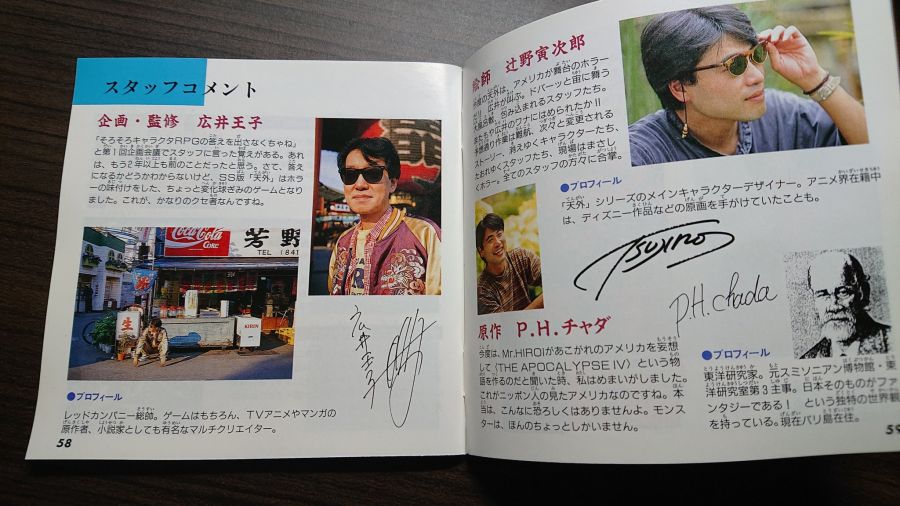 スタッフコメント
企画・監修 広井王子
「そろそろキャラクタRPGの答えを出さなくちゃね」
と第1回企画会議でスタッフに言った覚えがある。あれ
は、もう2年以上も前のことだったと思う。さて、答え
になるかどうかわからないけど、SS版「天外」はホラ
ーの味付けをした、ちょっと変化球ぎみのゲームとなり
ました。これが、かなりのクセ者なんですね。
Coca-Cola
Coke
芳野
TEL (841
氷
生
KIRIN
広井王子
●プロフィール
レッドカンパニー総帥。ゲームはもちろん、TVアニメやマンガの
原作者、小説家としても有名なマルチクリエイター。
58
絵師 辻野寅次郎
今度の天外は、アメリカが舞台のホラー
だ!! 広井が叫ぶ。ドバーッと宙に舞う
大風呂敷。包み込まれるスタッフたち。
私たちゃ広井のワナにはめられたか!!
予想通り作業は難航、次々と変更される
ストーリー、消えゆくキャラクターたち、
たおれゆくスタッフたち、現場はまさし
くホラー。全てのスタッフの方々に合掌。
●プロフィール
「天外」シリーズのメインキャラクターデザイナー。アニメ界在籍中
は、ディズニー作品などの原画を手がけていたことも。
TSUJINO
P.H.chada
原作 P.H.チャダ
今度は、Mr.HIROIがあこがれのアメリカを妄想
して〈THE APOCALYPSE IV〉という物
語を作るのだと聞いた時、私はめまいがしました。
これがニッポン人の見たアメリカなのですね。本
当は、こんなに恐ろしくはありませんよ。モンス
ターは、ほんのちょっとしかいません。
●プロフィール
東洋研究家。元スミソニアン博物館・東
洋研究室第3主事。日本そのものがファ
ンタジーである! という独特の世界観
を持っている。現在バリ島在住。
59